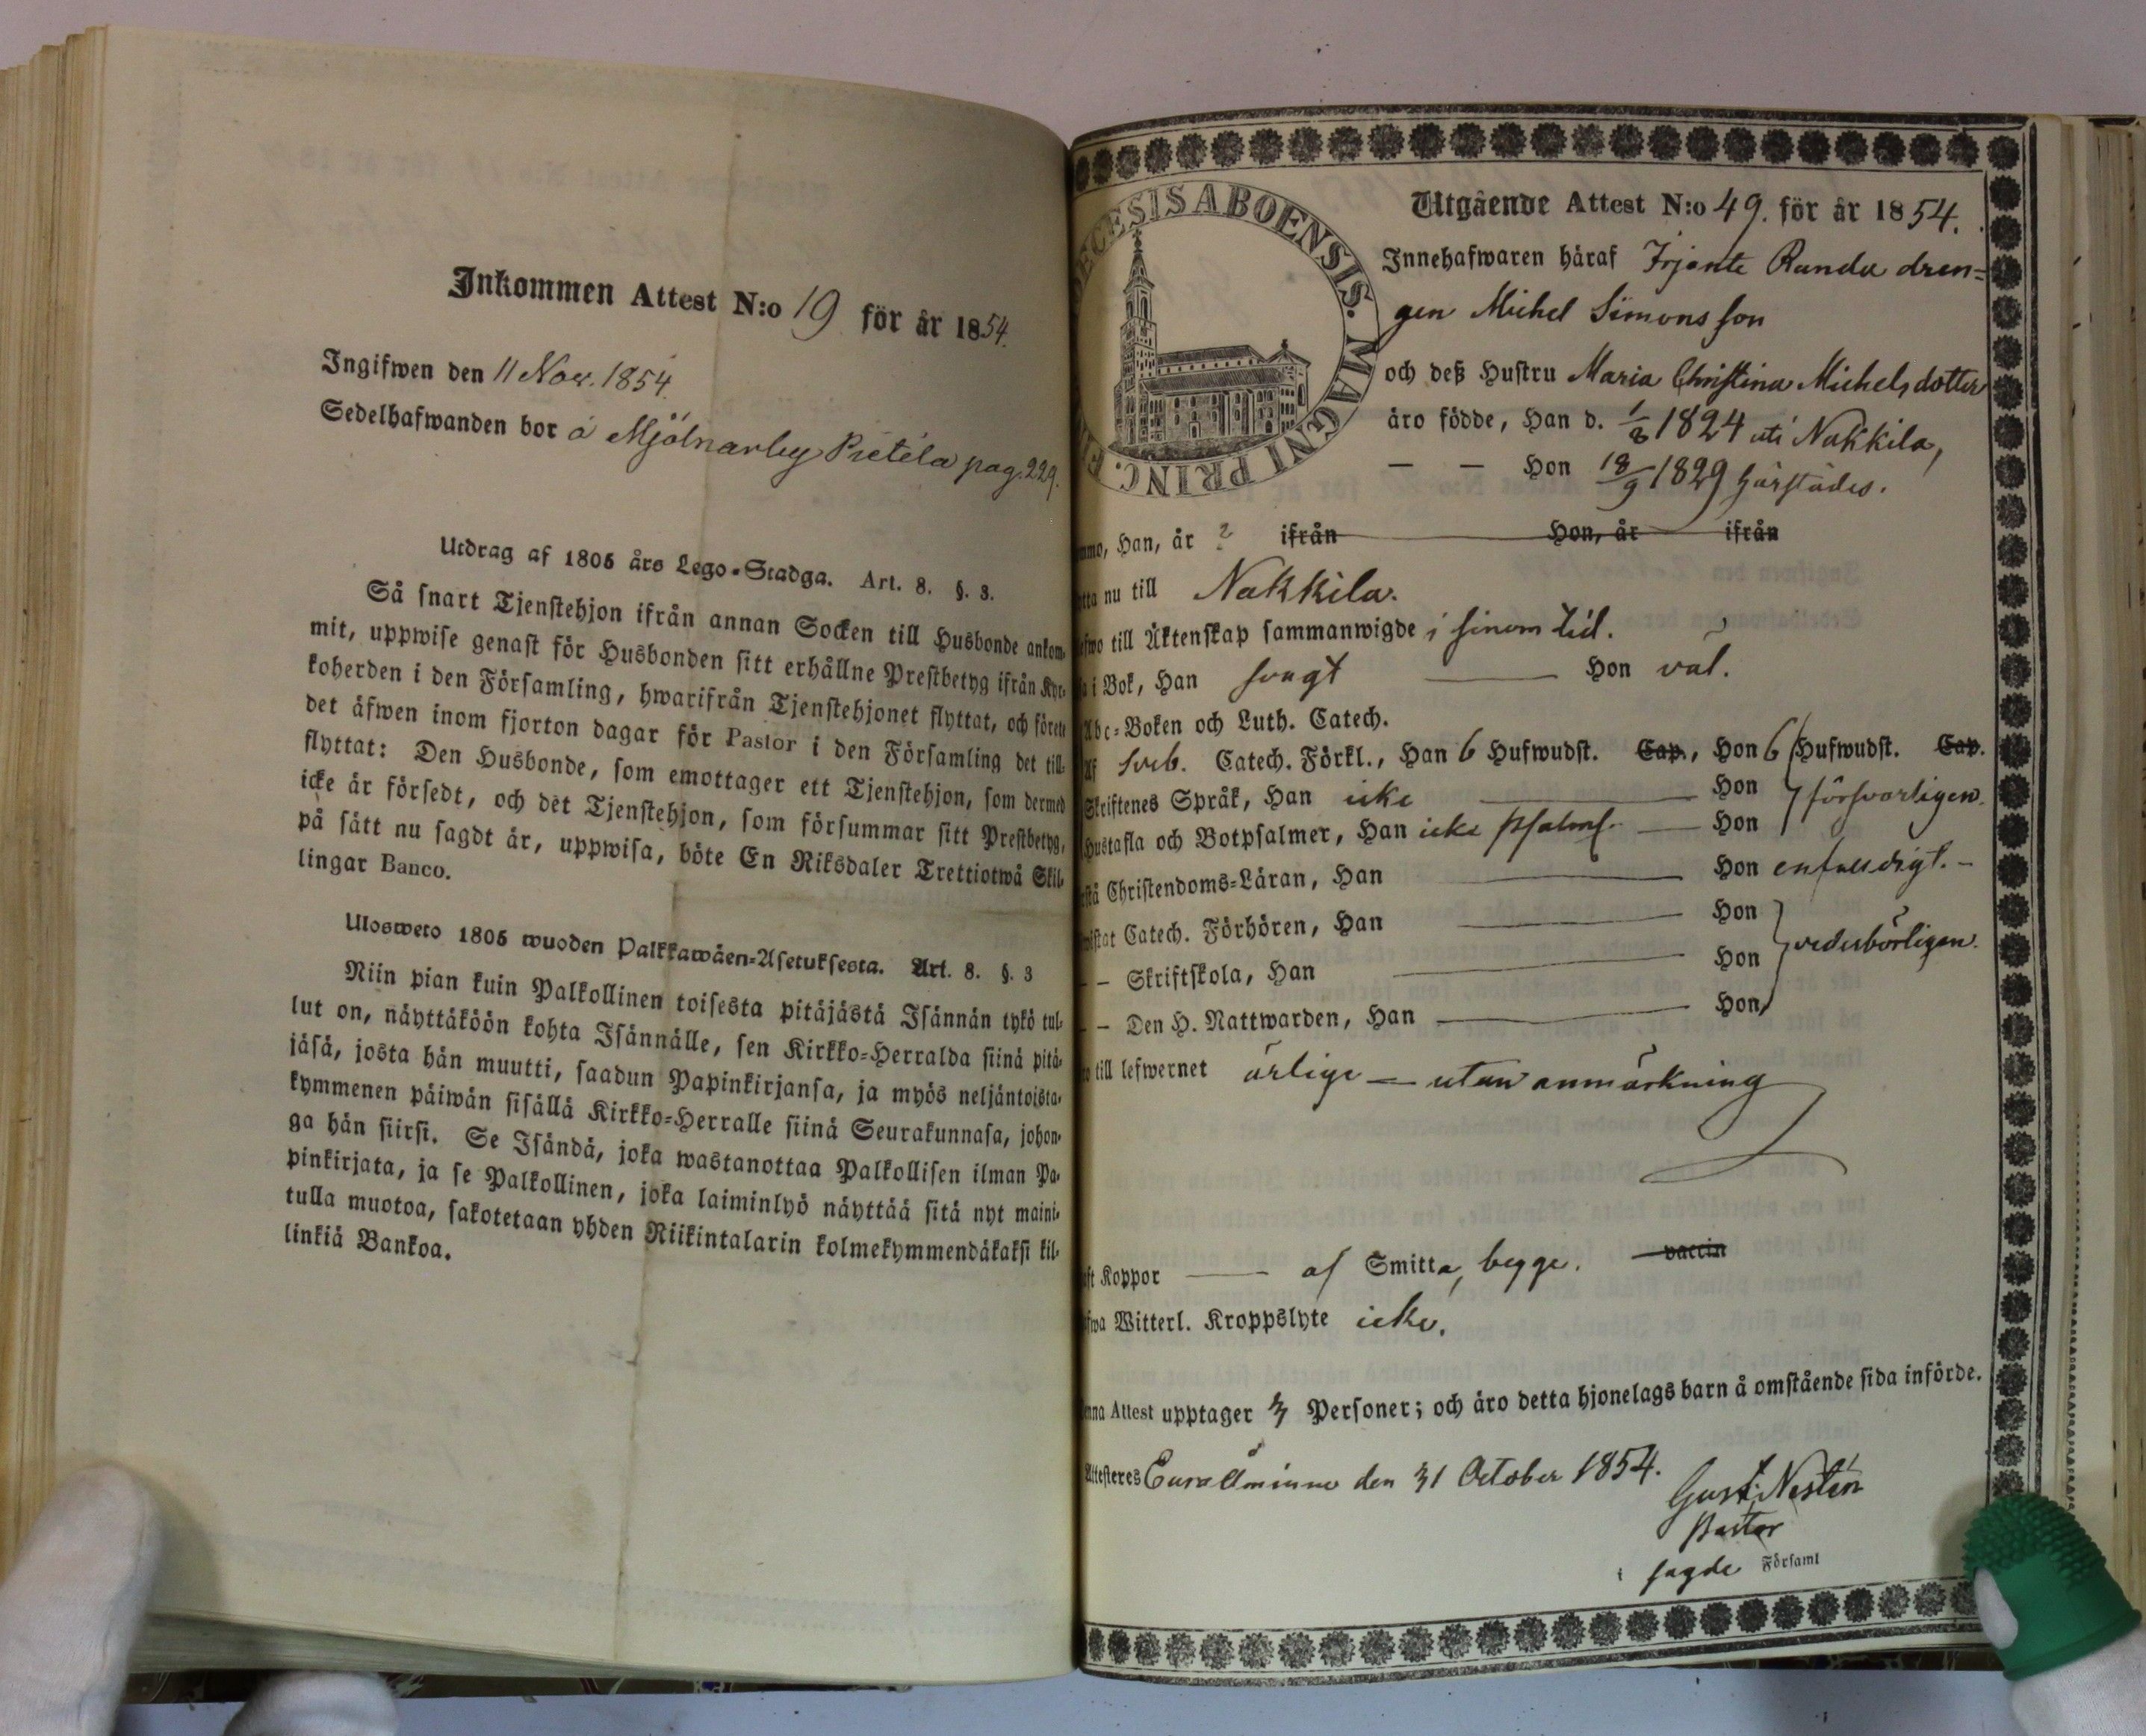 Inkommen Attest N:o 19 för år 1854.
Ingifwen den 11 Nov. 1854.
Sedelhafwanden bor å Mjölnarby Pietilä pag. 229.
Utdrag af 1805 års Lego-Stadga. Art. 8. §. 3.
Så snart Tjenstehjon ifrån annan Socken till Husbonde ankom-
mit, uppwise genast för Husbonden sitt erhållne Prestbetyg ifrån Kyr-
koherden i den Församling, hwarifrån Tjenstehjonet flyttat, och förete
det äfwen inom fjorton dagar för Pastor i den Församling det till-
flyttat: Den Husbonde, som emottager ett Tjenstehjon, som dermed
icke är försedt, och det Tjenstehjon, som försummar sitt Prestbetyg,
på sätt nu sagdt är, uppwisa, böte En Riksdaler Trettiotwå Skil-
lingar Banco.
Ulosweto 1805 wuoden Palkkawäen-Asetuksesta. Art. 8. §. 3
Niin pian kuin Palkollinen toisesta pitäjästä Isännän tykö tul-
lut on, näyttäköön kohta Isännälle, sen Kirkko-Herralda siinä pitä-
jäsä, josta hän muutti, saadun Papinkirjansa, ja myös neljäntoista-
kymmenen päiwän sisällä Kirkko-Herralle siinä Seurakunnasa, johon-
ga hän siirsi. Se Isändä, joka wastanottaa Palkollisen ilman Pa-
pinkirjata, ja se Palkollinen, joka laiminlyö näyttää sitä nyt maini-
tulla muotoa, sakotetaan yhden Riikintalarin kolmekymmendäkaksi kil-
linkiä Bankoa.
ECESIS ABOENSIS. MAGNI PRINC.
Utgående Attest N:o 49. för år 1854.
Innehafwaren häraf Irjante Randa dren=
gen Michel Simonsson
och deß Hustru Maria Christina Michelsdotter
äro födde, Han d. 1/8 1824 uti Nakkila,
— — Hon 18/9 1829 härstädes.
mmo, Han, år ? ifrån Hon, år ifrån
ytta nu till Nakkila.
efwo till Äktenskap sammanwigde i sinom tid.
a i Bok, Han svagt — Hon väl.
Abc-Boken och Luth. Catech.
Af Sveb. Catech. Förkl., Han 6 Hufwudst. Cap., Hon 6 Hufwudst. Cap.
Skriftenes Språk, Han icke — Hon } försvarligen.
Hustafla och Botpsalmer, Han icke psalms. — Hon
stå Christendoms-Läran, Han — Hon enfalldigt. —
wistat Catech. Förhören, Han — Hon } vederbörligen.
- – Skriftskola, Han — Hon
- – Den H. Nattwarden, Han — Hon,
o till lefwernet ärlige — utan anmärkning
aft Koppor — af Smitta, begge. vaccin
afwa Witterl. Kroppslyte icke.
enna Attest upptager 3 Personer; och äro detta hjonelags barn å omstående sida införde.
Attesteres Euraåminne den 31 October 1854.
Gust. Nestén
Pastor
i sagde Församl